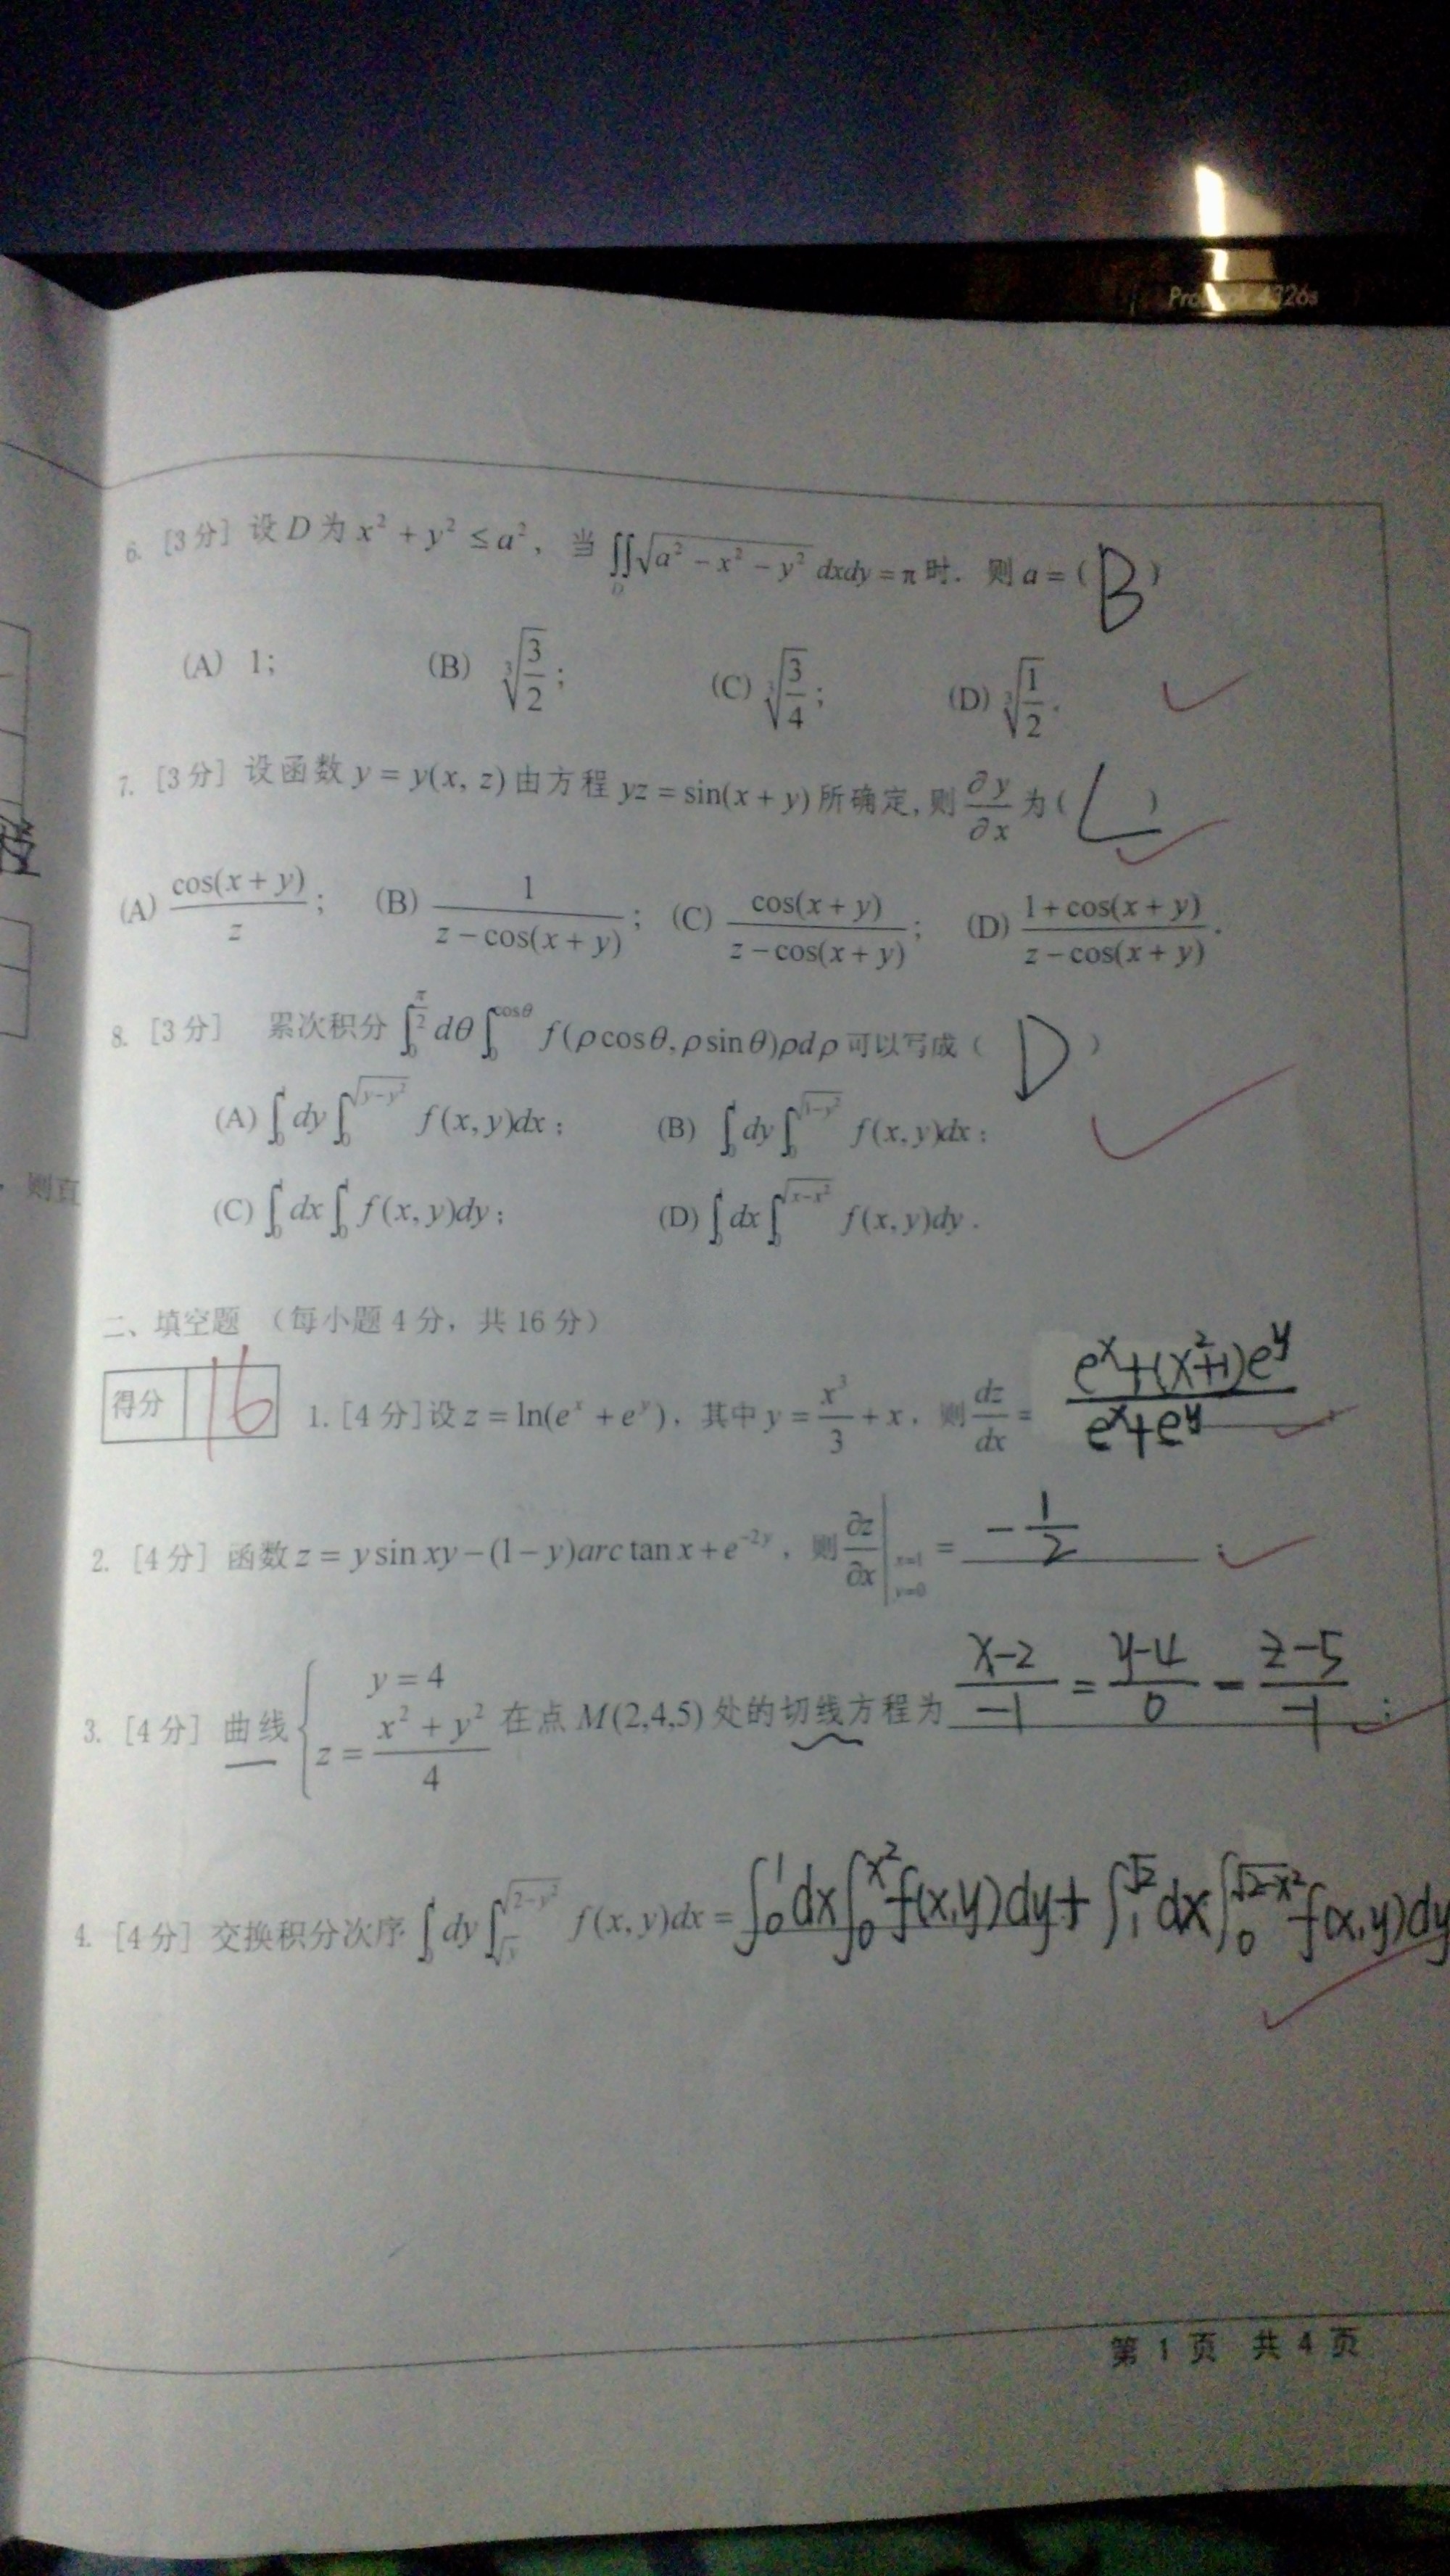 6. [3分] 设 D 为 x² + y² ≤ a², 当 ∬_D √(a² − x² − y²) dxdy = π 时. 则 a = ( B )
(A) 1; (B) ∛(3/2); (C) ∛(3/4); (D) ∛(1/2).
7. [3分] 设函数 y = y(x, z) 由方程 yz = sin(x + y) 所确定, 则 ∂y/∂x 为 ( C )
(A) cos(x + y)/z; (B) 1/(z − cos(x + y)); (C) cos(x + y)/(z − cos(x + y)); (D) (1 + cos(x + y))/(z − cos(x + y)).
8. [3分] 累次积分 ∫₀^(π/2) dθ ∫₀^(cosθ) f(ρcosθ, ρsinθ)ρdρ 可以写成 ( D )
(A) ∫₀ dy ∫₀^√(y−y²) f(x, y)dx; (B) ∫₀ dy ∫₀^√(1−y²) f(x, y)dx;
(C) ∫₀ dx ∫₀ f(x, y)dy; (D) ∫₀ dx ∫₀^√(x−x²) f(x, y)dy.
则直
二、填空题 (每小题 4 分, 共 16 分)
得分 16
1. [4分] 设 z = ln(eˣ + eʸ), 其中 y = x³/3 + x, 则 dz/dx = (eˣ+(x²+1)eʸ)/(eˣ+eʸ)
2. [4分] 函数 z = y sin xy − (1 − y)arc tan x + e^(−2y), 则 ∂z/∂x |x=1 y=0 = −1/2 ;
3. [4分] 曲线 { y = 4 z = (x² + y²)/4 在点 M(2,4,5) 处的切线方程为 (x−2)/−1 = (y−4)/0 = (z−5)/−1 ;
4. [4分] 交换积分次序 ∫₀ dy ∫_√y^√(2−y²) f(x, y)dx = ∫₀¹dx∫₀^(x²) f(x,y)dy + ∫₁^√2 dx∫₀^√(2−x²) f(x,y)dy
第 1 页 共 4 页